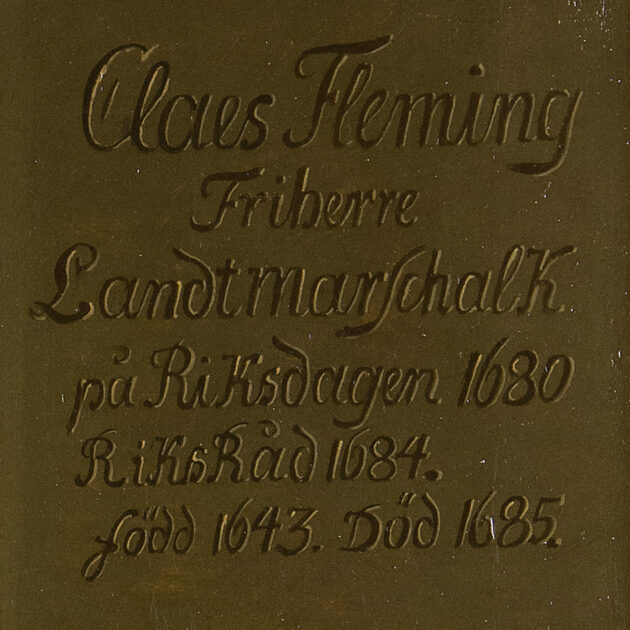 Claes Fleming
Friherre
Landtmarschalk
på Riksdagen 1680
RiksRåd 1684.
född 1643. Död 1685.